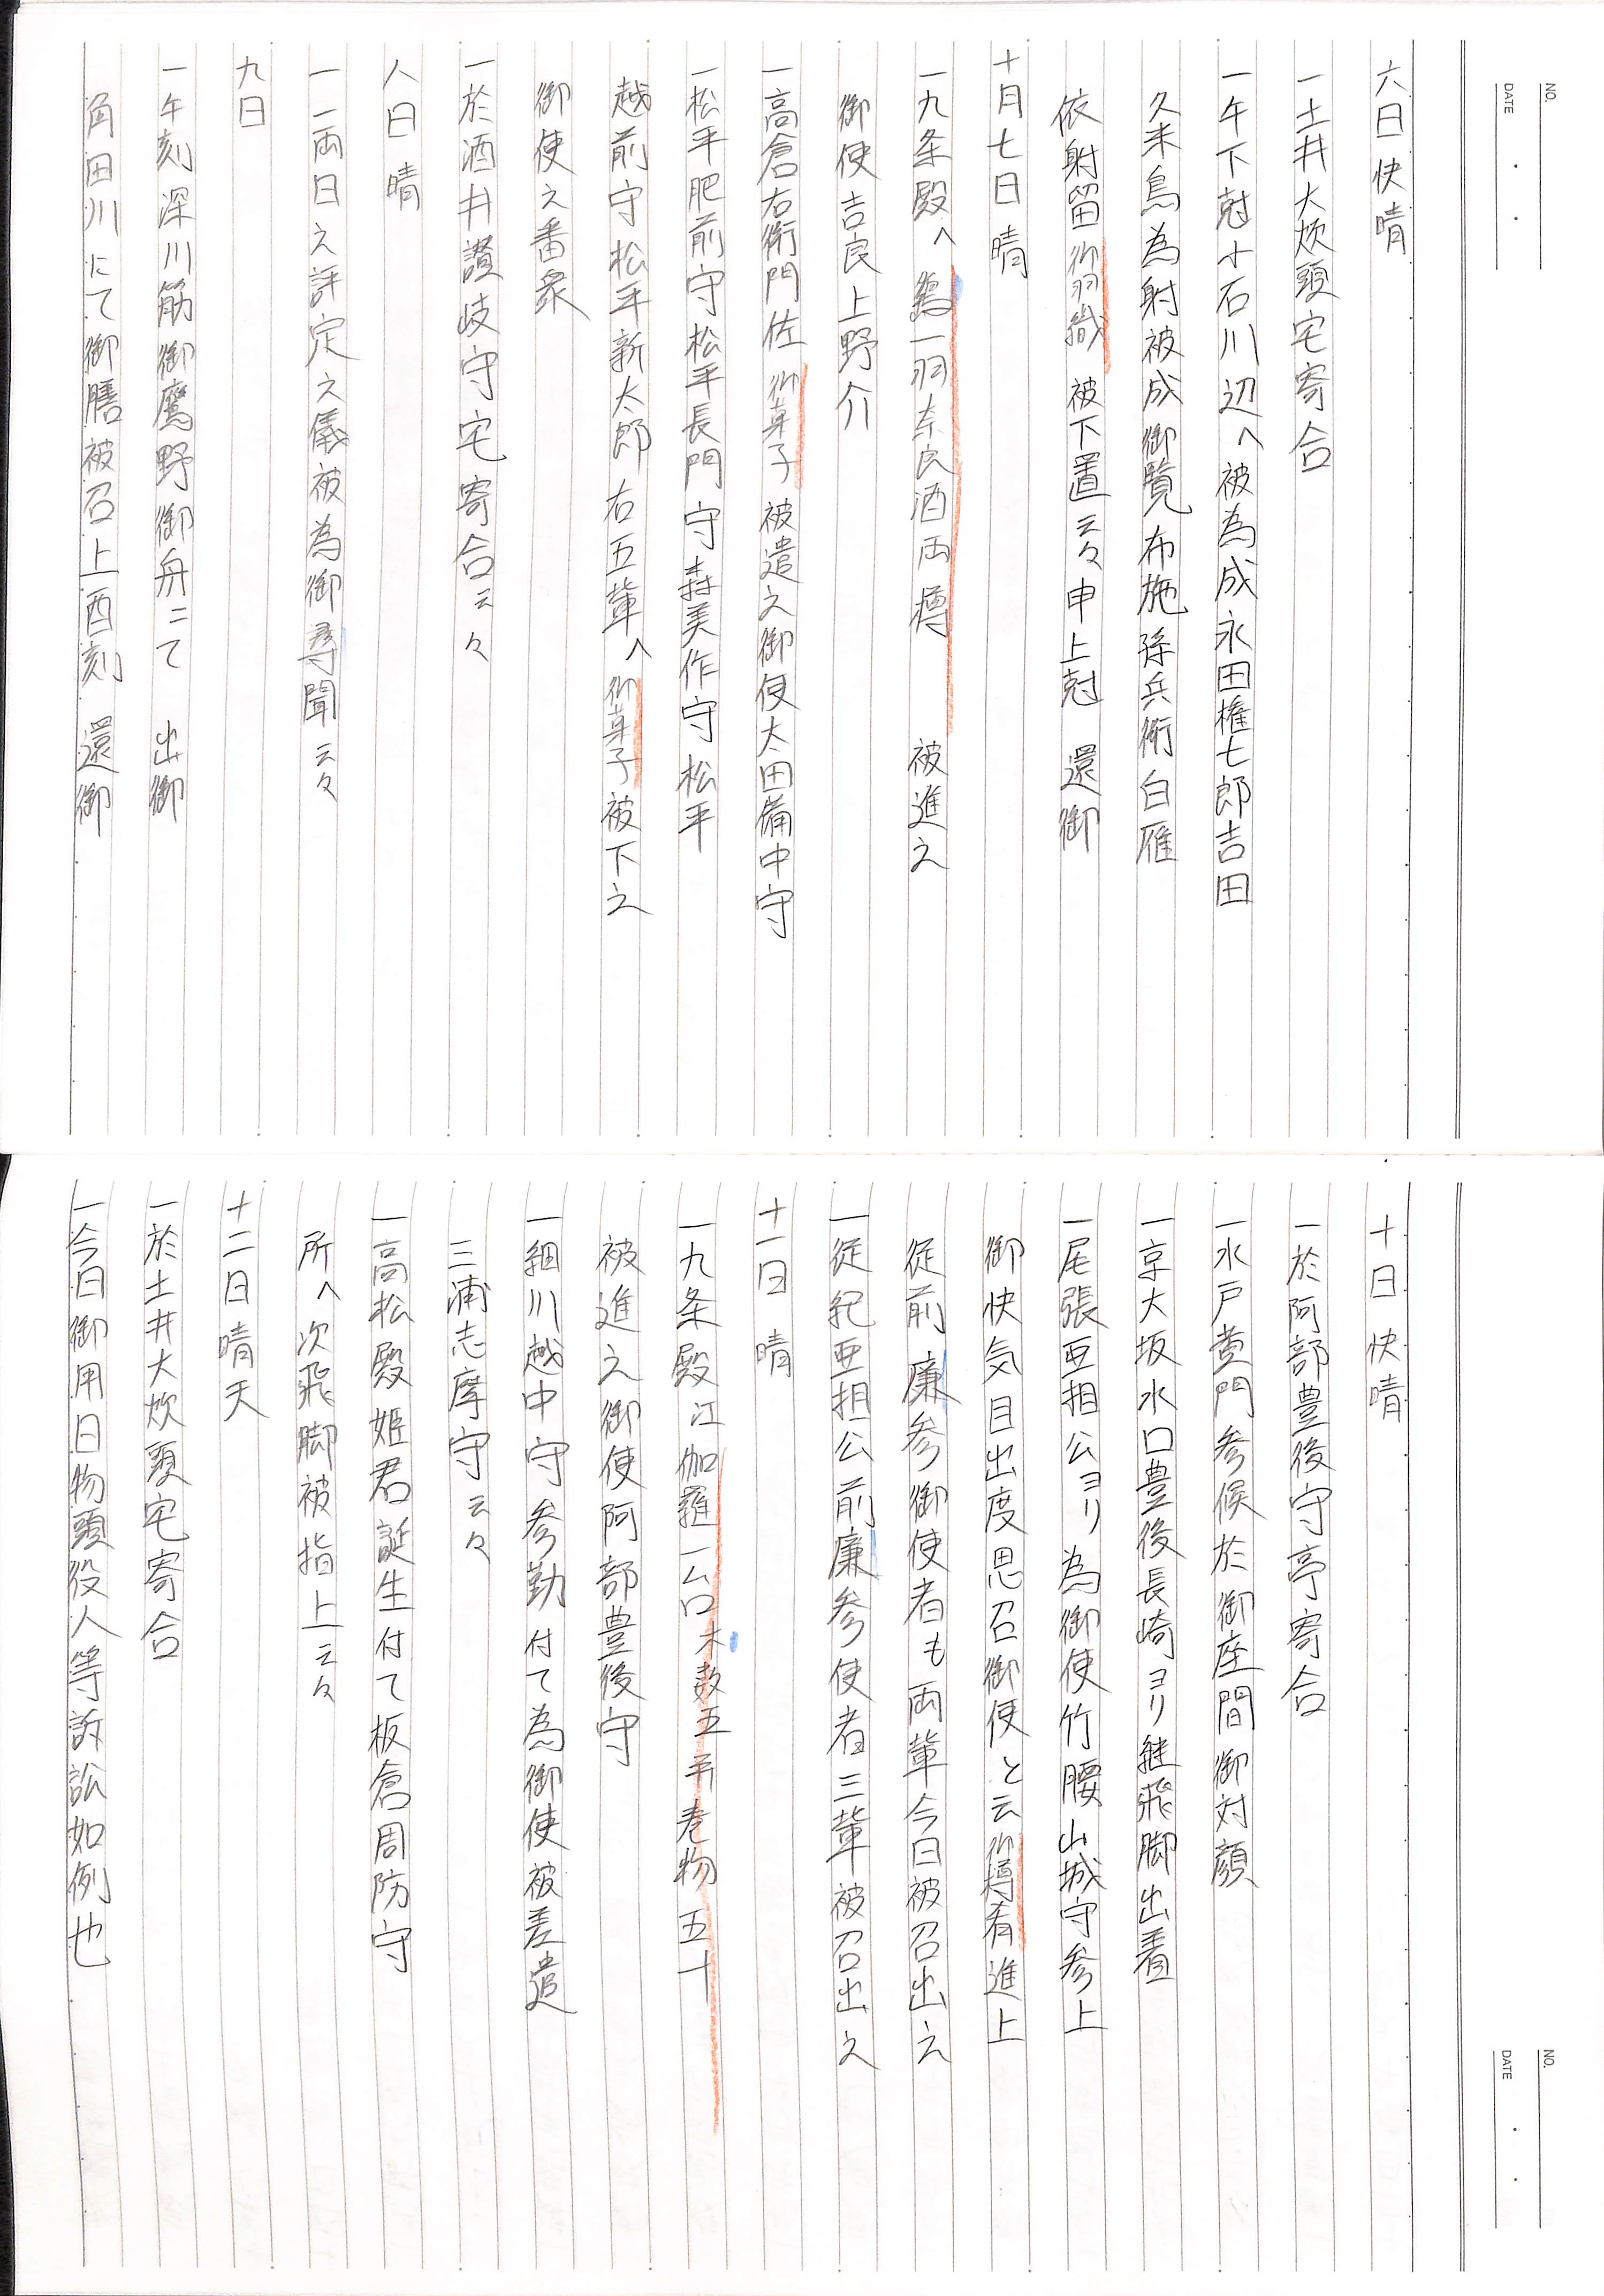 NO.
DATE
六日 快晴
一土井大炊頭宅寄合
一午下尅小石川辺へ被為成永田権七郎吉田
久米鳥為射被成御覧布施孫兵衛白雁
依射留御羽織 被下置云々申上尅 還御
十月七日 晴
一九条殿へ 鶴一羽奈良酒両樽 被進之
御使吉良上野介
一高倉右衛門佐 御菓子 被遣之御使太田備中守
一松平肥前守松平長門守森美作守松平
越前守松平新太郎 右五輩へ御菓子被下之
御使之番衆
一於酒井讃岐守宅寄合云々
八日 晴
一一両日之評定之儀被為御尋聞云々
九日
一午刻深川筋御鷹野御舟ニて 出御
角田川にて御膳被召上酉刻 還御
NO.
DATE
十日 快晴
一於阿部豊後守亭寄合
一水戸黄門参候於御座間御対顔
一京大坂水口豊後長崎ヨリ継飛脚出着
一尾張亜相公ヨリ為御使竹腰山城守参上
御快気目出度思召御使と云御樽肴進上
従前廉参御使者も両輩今日被召出之
一従紀亜相公前廉参使者三輩被召出之
十一日 晴
一九条殿江伽羅一ム口木数五斤巻物五十
被進之御使阿部豊後守
一細川越中守参勤付て為御使被差遣
三浦志摩守云々
一高松殿姫君誕生付て板倉周防守
所へ次飛脚被指上云々
十二日 晴天
一於土井大炊頭宅寄合
一今日御用日物頭役人等訴訟如例也